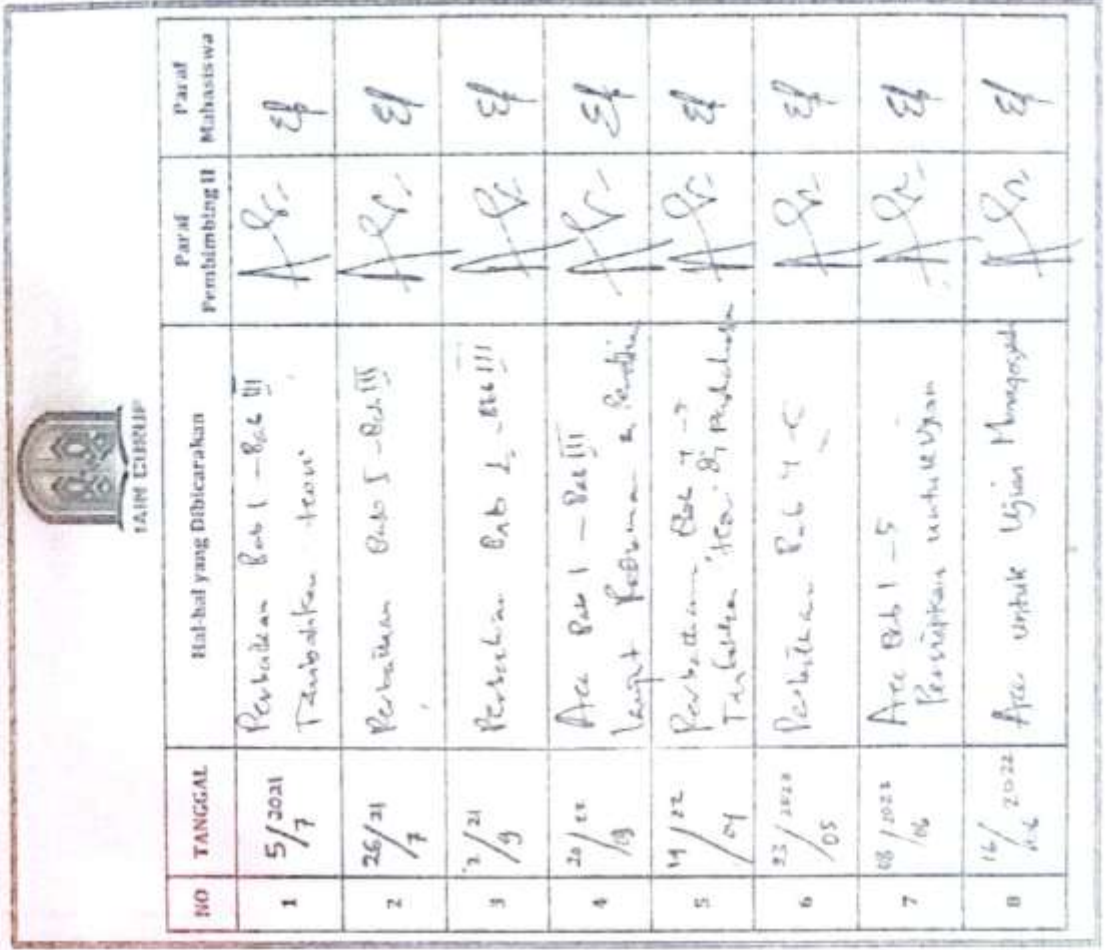 IAIN CURUP
NO TANGGAL Hal-hal yang Dibicarakan Paraf Pembimbing II Paraf Mahasiswa
1 5/7 2021 Perbaikan Bab I - Bab III
Tambahkan teori
2 26/7 21 Perbaikan Bab I - Bab III
3 2/9 21 Perbaikan Bab I - Bab III
4 20/03 22 Acc Bab I - Bab III
Lanjut
5 19/04 22 Perbaikan Bab 4 - 5
Tambahkan teori di
6 23/05 2022 Perbaikan Bab 4 - 5
7 08/06 2022 Acc Bab 1 - 5
Persiapkan untuk Ujian
8 16/06 2022 Acc untuk Ujian Munaqosyah